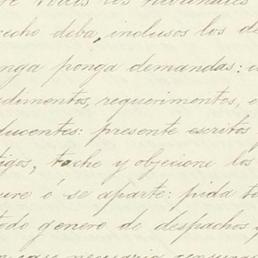 recho deba, inclusos los de
nga ponga demandas:
dimentos, requerimentos, e
ducentes: presente escritos
tigos, tache y objecione los
ure ó se aparte: pida
todo genero de despachos y